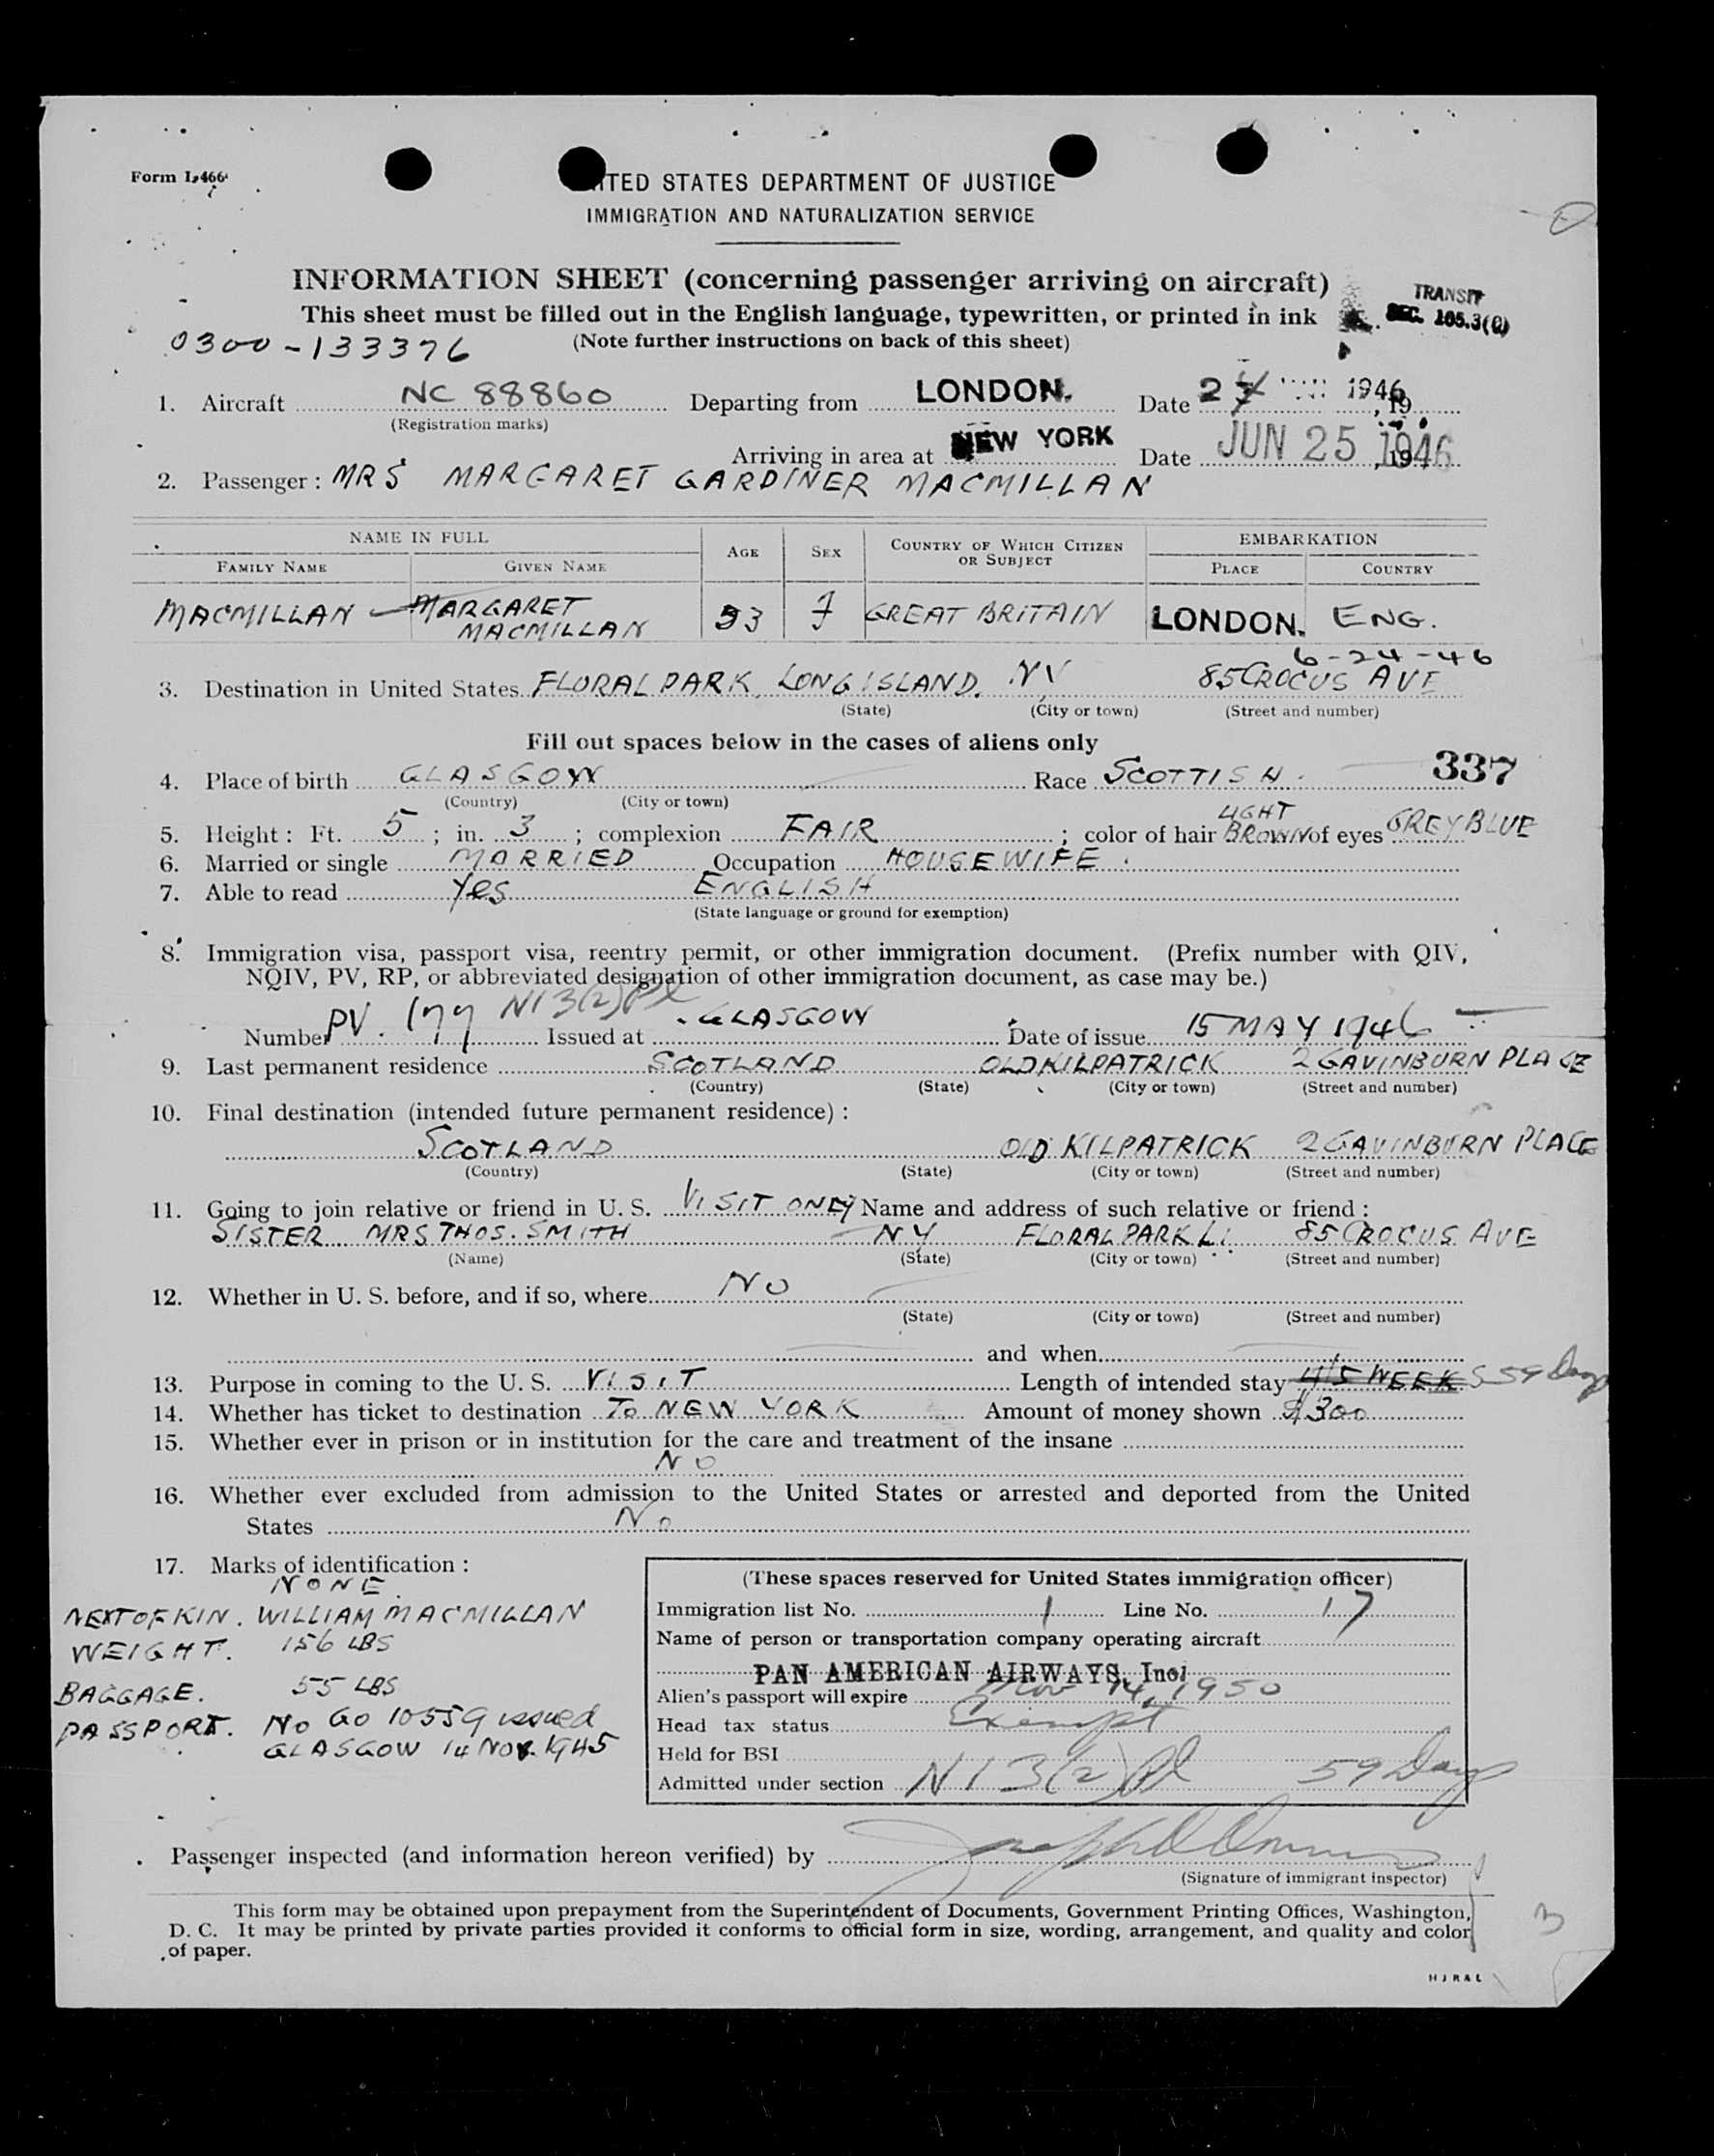 Form I-466
UNITED STATES DEPARTMENT OF JUSTICE
IMMIGRATION AND NATURALIZATION SERVICE
INFORMATION SHEET (concerning passenger arriving on aircraft)
This sheet must be filled out in the English language, typewritten, or printed in ink
(Note further instructions on back of this sheet)
TRANSIT
SEC. 105.3(
0300-133376
1. Aircraft NC 88860 Departing from LONDON. Date 24 1946, 19
(Registration marks)
Arriving in area at NEW YORK Date JUN 25 1946, 19
2. Passenger : MRS MARGARET GARDINER MACMILLAN
NAME IN FULL AGE SEX COUNTRY OF WHICH CITIZEN OR SUBJECT EMBARKATION
FAMILY NAME GIVEN NAME PLACE COUNTRY
MACMILLAN MARGARET MACMILLAN 33 F GREAT BRITAIN LONDON. ENG.
6-24-46
3. Destination in United States FLORAL PARK, LONG ISLAND. NY 85 CROCUS AVE
(State) (City or town) (Street and number)
Fill out spaces below in the cases of aliens only
337
4. Place of birth GLASGOW Race SCOTTISH.
(Country) (City or town)
5. Height : Ft. 5 ; in. 3 ; complexion FAIR ; color of hair LIGHT BROWN of eyes GREY BLUE
6. Married or single MARRIED Occupation HOUSEWIFE.
7. Able to read Yes ENGLISH
(State language or ground for exemption)
8. Immigration visa, passport visa, reentry permit, or other immigration document. (Prefix number with QIV,
NQIV, PV, RP, or abbreviated designation of other immigration document, as case may be.)
Number PV. 177 N1 3(2) Pl Issued at GLASGOW Date of issue 15 MAY 1946
9. Last permanent residence SCOTLAND OLD KILPATRICK 2 GAVINBURN PLACE
(Country) (State) (City or town) (Street and number)
10. Final destination (intended future permanent residence) :
SCOTLAND OLD KILPATRICK 2 GAVINBURN PLACE
(Country) (State) (City or town) (Street and number)
11. Going to join relative or friend in U. S. VISIT ONLY Name and address of such relative or friend :
SISTER MRS THOS. SMITH NY FLORAL PARK L.I. 85 CROCUS AVE
(Name) (State) (City or town) (Street and number)
12. Whether in U. S. before, and if so, where NO
(State) (City or town) (Street and number)
and when
13. Purpose in coming to the U. S. VISIT Length of intended stay 4/5 WEEKS 59 Days
14. Whether has ticket to destination TO NEW YORK Amount of money shown $300
15. Whether ever in prison or in institution for the care and treatment of the insane
NO
16. Whether ever excluded from admission to the United States or arrested and deported from the United
States No
17. Marks of identification :
NONE.
NEXT OF KIN. WILLIAM MACMILLAN
WEIGHT. 156 LBS
BAGGAGE. 55 LBS
PASSPORT. No GO 10559 issued
GLASGOW 14 NOV. 1945
(These spaces reserved for United States immigration officer)
Immigration list No. 1 Line No. 17
Name of person or transportation company operating aircraft
PAN AMERICAN AIRWAYS, Inc.
Alien's passport will expire Nov 14, 1950
Head tax status Exempt
Held for BSI
Admitted under section N1 3(2) Pl 59 Days
Passenger inspected (and information hereon verified) by
(Signature of immigrant inspector)
This form may be obtained upon prepayment from the Superintendent of Documents, Government Printing Offices, Washington,
D. C. It may be printed by private parties provided it conforms to official form in size, wording, arrangement, and quality and color
of paper.
3
HJR&L